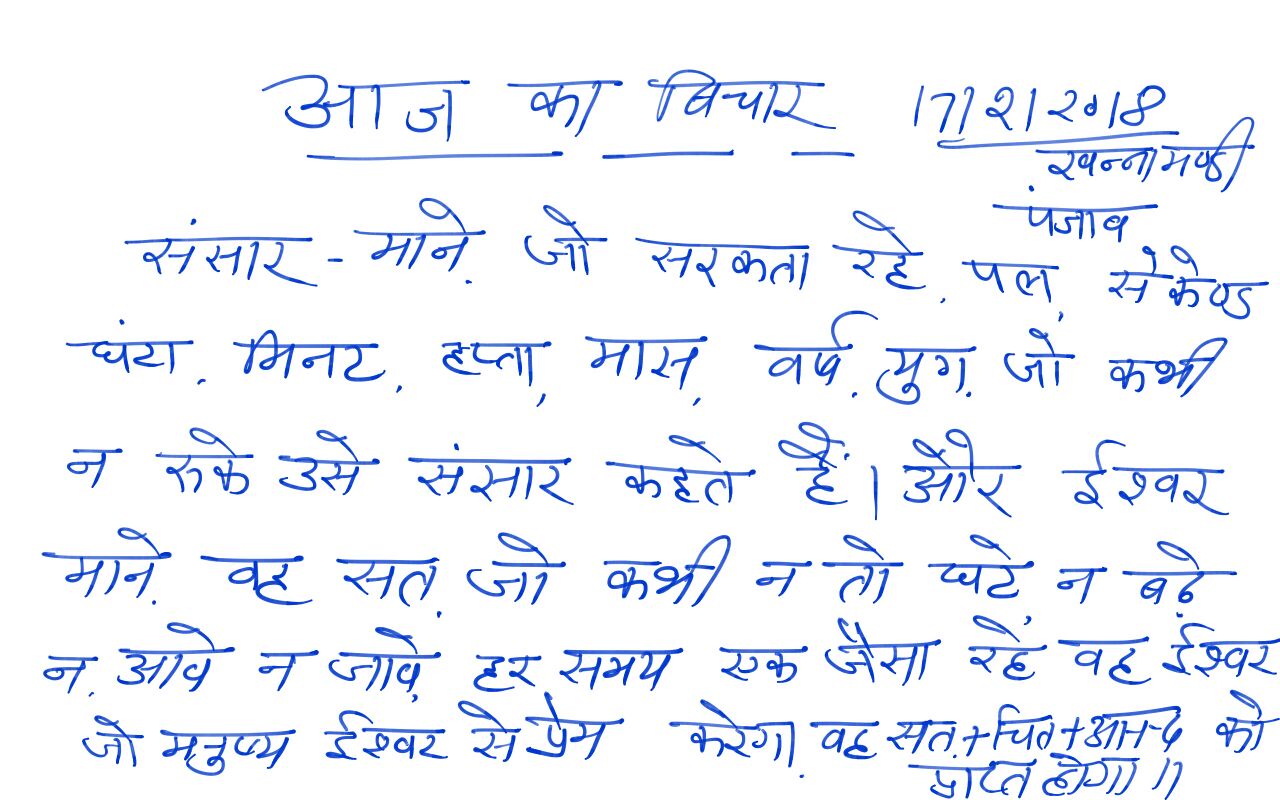 आज का विचार 17/2/2018
खन्ना मण्डी
पंजाव
संसार - माने, जो सरकता रहे, पल, सेकेण्ड
घंटा, मिनट, हप्ता, मास, वर्ष, युग, जो कभी
न रुके उसे संसार कहते हैं। और ईश्वर
माने, वह सत, जो कभी न तो घटे, न बढ़े
न, आवे न जावे, हर समय एक जैसा रहे वह ईश्वर
जो मनुष्य ईश्वर से प्रेम करेगा, वह सत्+चित+आनन्द को
प्राप्त होगा॥